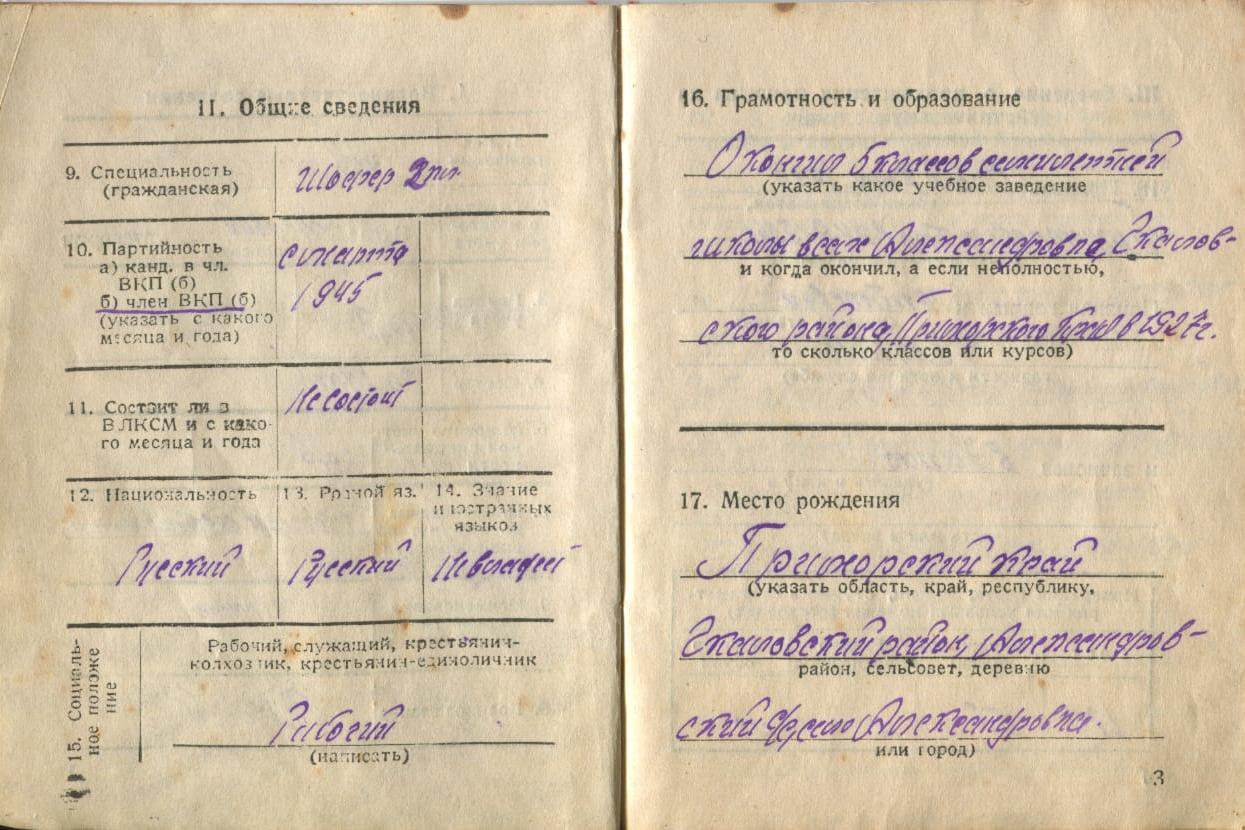 II. Общие сведения
9. Специальность
(гражданская)
Шофер 2 кл.
10. Партийность
а) канд. в чл.
ВКП (б)
б) член ВКП (б)
(указать с какого
месяца и года)
с марта
1945
11. Состоит ли в
ВЛКСМ и с како-
го месяца и года
Не состоит
12. Национальность
Русский
13. Родной яз.
Русский
14. Знание
иностранных
языков
Не владеет
15. Социаль-
ное положе
ние
Рабочий, служащий, крестьянин-
колхозник, крестьянин-единоличник
Рабочий
(написать)
16. Грамотность и образование
Окончил 5 классов семилетней
(указать какое учебное заведение
школы в селе Александровка, Чкалов-
и когда окончил, а если неполностью,
ского района, Приморского края в 1927 г.
то сколько классов или курсов)
17. Место рождения
Приморский край
(указать область, край, республику,
Чкаловский район, Александров-
район, сельсовет, деревню
ский село Александровка.
или город)
3